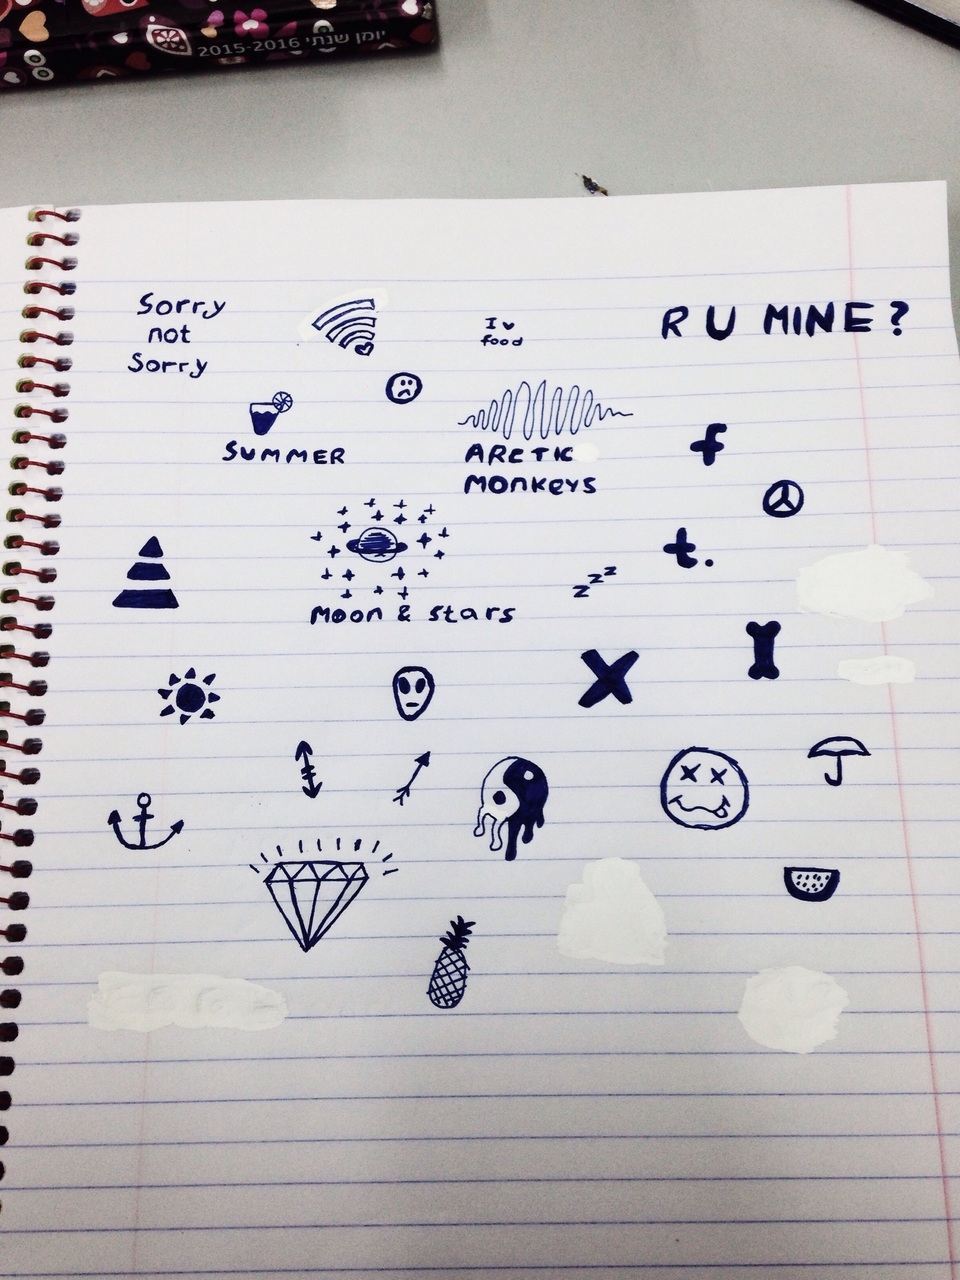 יומן שנתי 2015-2016
Sorry
not
Sorry
I ♥
food
R U MINE?
SUMMER
ARCTIC
MONKEYS
f
t.
zzz
Moon & Stars